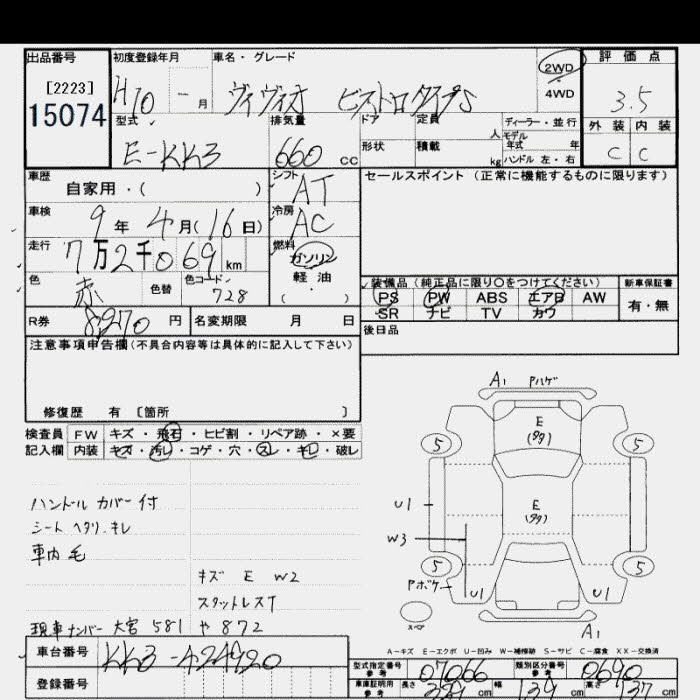 出品番号 初度登録年月 車名・グレード 2WD 評価点
[2223] H10 - 月 ヴィヴィオ ビストロタイプS ・ 4WD 3.5
15074 型式 排気量 ドア 定員 ディーラー・並行 外装 内装
E-KK3 660 CC 形状 積載 人 kg モデル年式 年 ハンドル 左・右 C C
車歴 自家用・( ) シフト AT セールスポイント (正常に機能するものに限ります)
車検 9年 4月(16日) 冷房 AC
走行 7万2千069 km 燃料 ガソリン
色 赤 色替 色コード 728 軽油 ( ・ )
装備品 (純正品に限り○をつけてください) 新車保証書
PS PW ABS エアB AW 有・無
SR ナビ TV カワ
R券 8970 円 名変期限 月 日 後日品
注意事項申告欄(不具合内容等は具体的に記入して下さい)
修復歴 有 [箇所 ]
検査員 FW キズ・飛石・ヒビ割・リペア跡・×要
記入欄 内装 キズ・汚レ・コゲ・穴・スレ・キレ・破レ
A1 Pハゲ
E
5 5
ハンドルカバー付
シートヘタリ.キレ
車内毛
U1
E
W3
5 5
キズ E W2
スタットレスT
Pボケ U1 U1
スペア
A1
現車ナンバー 大宮 581 や 872
A-キズ E-エクボ U-凹み W-補修跡 S-サビ C-腐食 XX-交換済
車台番号 KK3-424920
型式指定番号 参考 07066 類別区分番号 参考 0640
登録番号
車庫証明用 参考 長さ cm 幅 139 cm 高さ 137 cm